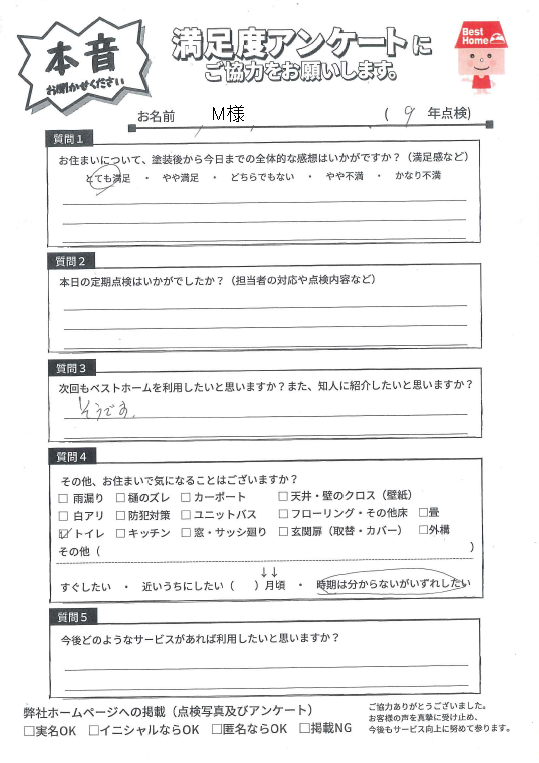 本音
お聞かせください
満足度アンケートに
ご協力をお願いします。
Best Home
お名前 M様 ( 9 年点検)
質問1
お住まいについて、塗装後から今日までの全体的な感想はいかがですか？（満足感など）
とても満足 ・ やや満足 ・ どちらでもない ・ やや不満 ・ かなり不満
質問2
本日の定期点検はいかがでしたか？（担当者の対応や点検内容など）
質問3
次回もベストホームを利用したいと思いますか？また、知人に紹介したいと思いますか？
そうです。
質問4
その他、お住まいで気になることはございますか？
□ 雨漏り □ 樋のズレ □ カーポート □ 天井・壁のクロス（壁紙）
□ 白アリ □ 防犯対策 □ ユニットバス □ フローリング・その他床 □畳
☑ トイレ □ キッチン □ 窓・サッシ廻り □ 玄関扉（取替・カバー） □外構
その他（ ）
↓↓
すぐしたい ・ 近いうちにしたい（ ）月頃 ・ 時期は分からないがいずれしたい
質問5
今後どのようなサービスがあれば利用したいと思いますか？
弊社ホームページへの掲載（点検写真及びアンケート）
□実名OK □イニシャルならOK □匿名ならOK □掲載NG
ご協力ありがとうございました。
お客様の声を真摯に受け止め、
今後もサービス向上に努めて参ります。